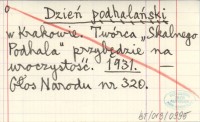 o.
Dzień podhalański
w Krakowie. Twórca „Skalnego
Podhala" przybędzie na
uroczystość. 1931. —
Głos Narodu nr. 320.